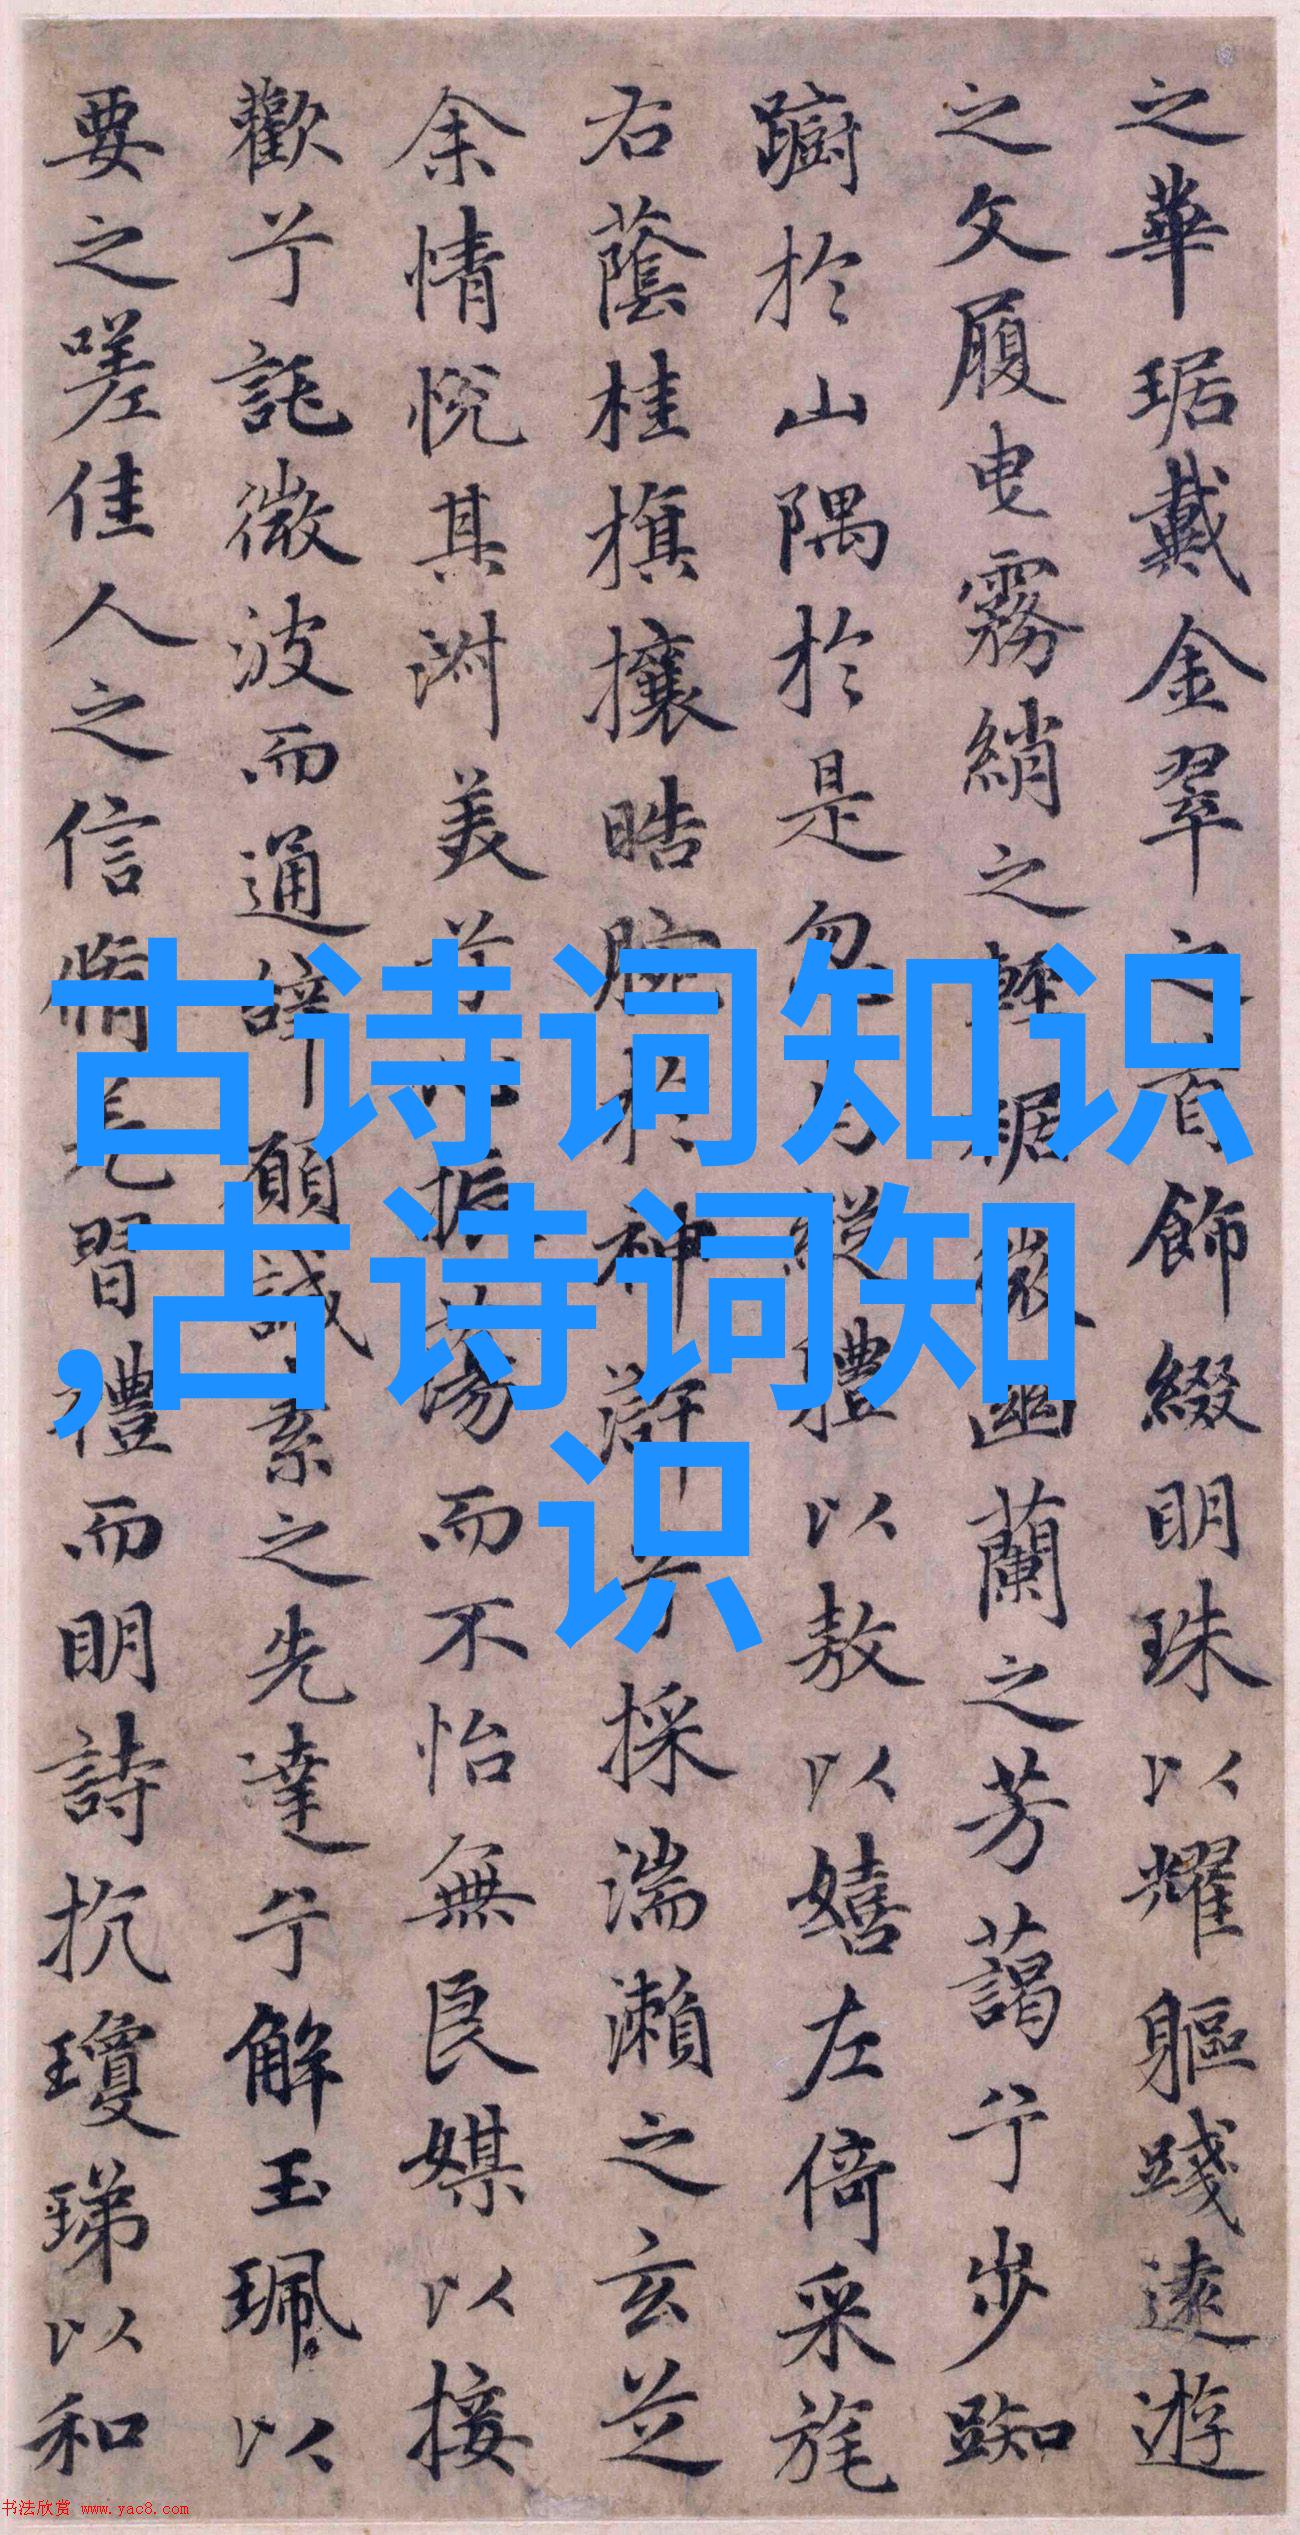 之華琚戴金翠之首飾綴眀珠以耀軀踐遠遊
之文履曳霧綃之輕裾微幽蘭之芳藹兮步踟
蹰於山隅於是忽縱體以敖以嬉左倚采旄
右蔭桂旗攘晧腕於神滸兮採湍瀨之玄芝
余情悅其淑美兮振蕩而不怡無良媒以接
歡兮託微波而通辭願誠素之先達兮解玉珮以
要之嗟佳人之信脩羌習禮而眀詩抗瓊珶以和
古诗词知识
,古诗词知
识
书法欣赏 www.yac8.com